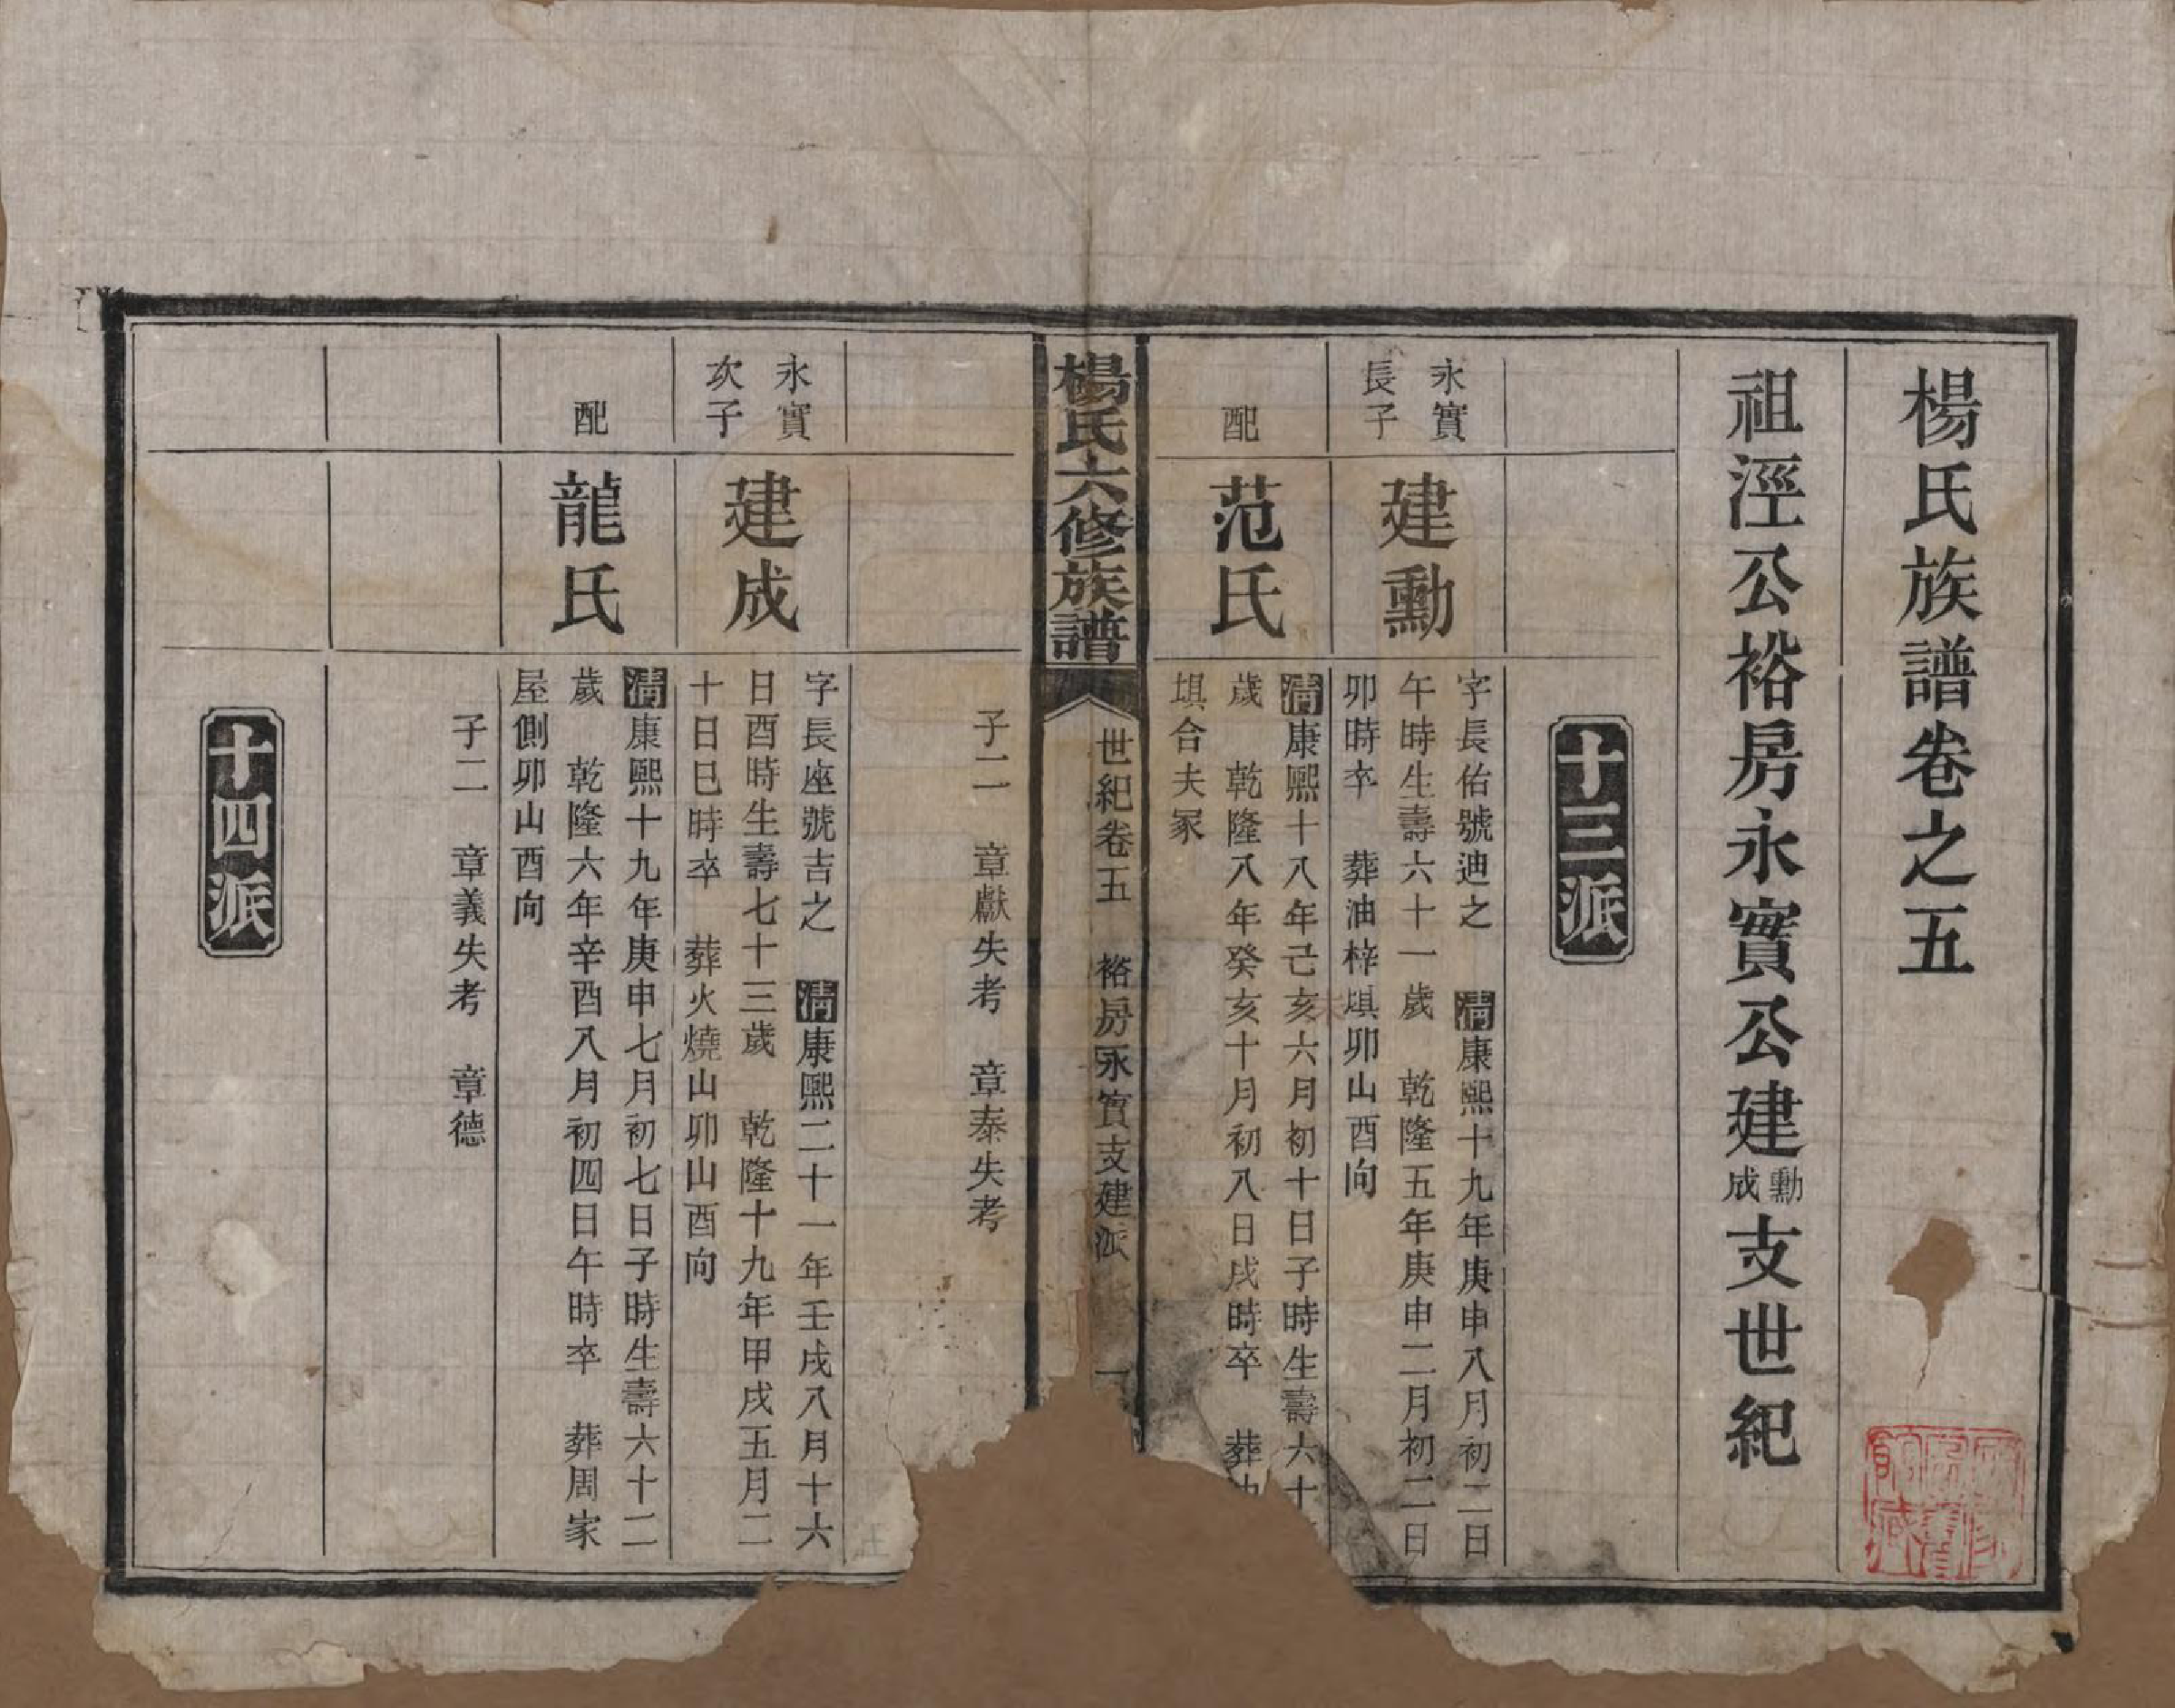 楊氏族譜卷之五
祖涇公裕房永實公建勳成支世紀
十三派
永實
長子
建勳
字長佑號迪之　清康熙十九年庚申八月初二日
午時生壽六十一歲　乾隆五年庚申二月初二日
卯時卒　葬油梓埧卯山酉向
配
范氏
清康熙十八年己亥六月初十日子時生壽六十
歲　乾隆八年癸亥十月初八日戌時卒　葬
埧合夫冢
楊氏六修族譜
世紀卷五　裕房永實支建派
一
子二　章獻失考　章泰失考
永實
次子
建成
字長座號吉之　清康熙二十一年壬戌八月十六
日酉時生壽七十三歲　乾隆十九年甲戌五月二
十日巳時卒　葬火燒山卯山酉向
配
龍氏
清康熙十九年庚申七月初七日子時生壽六十二
歲　乾隆六年辛酉八月初四日午時卒　葬周家
屋側卯山酉向
子二　章義失考　章德
十四派